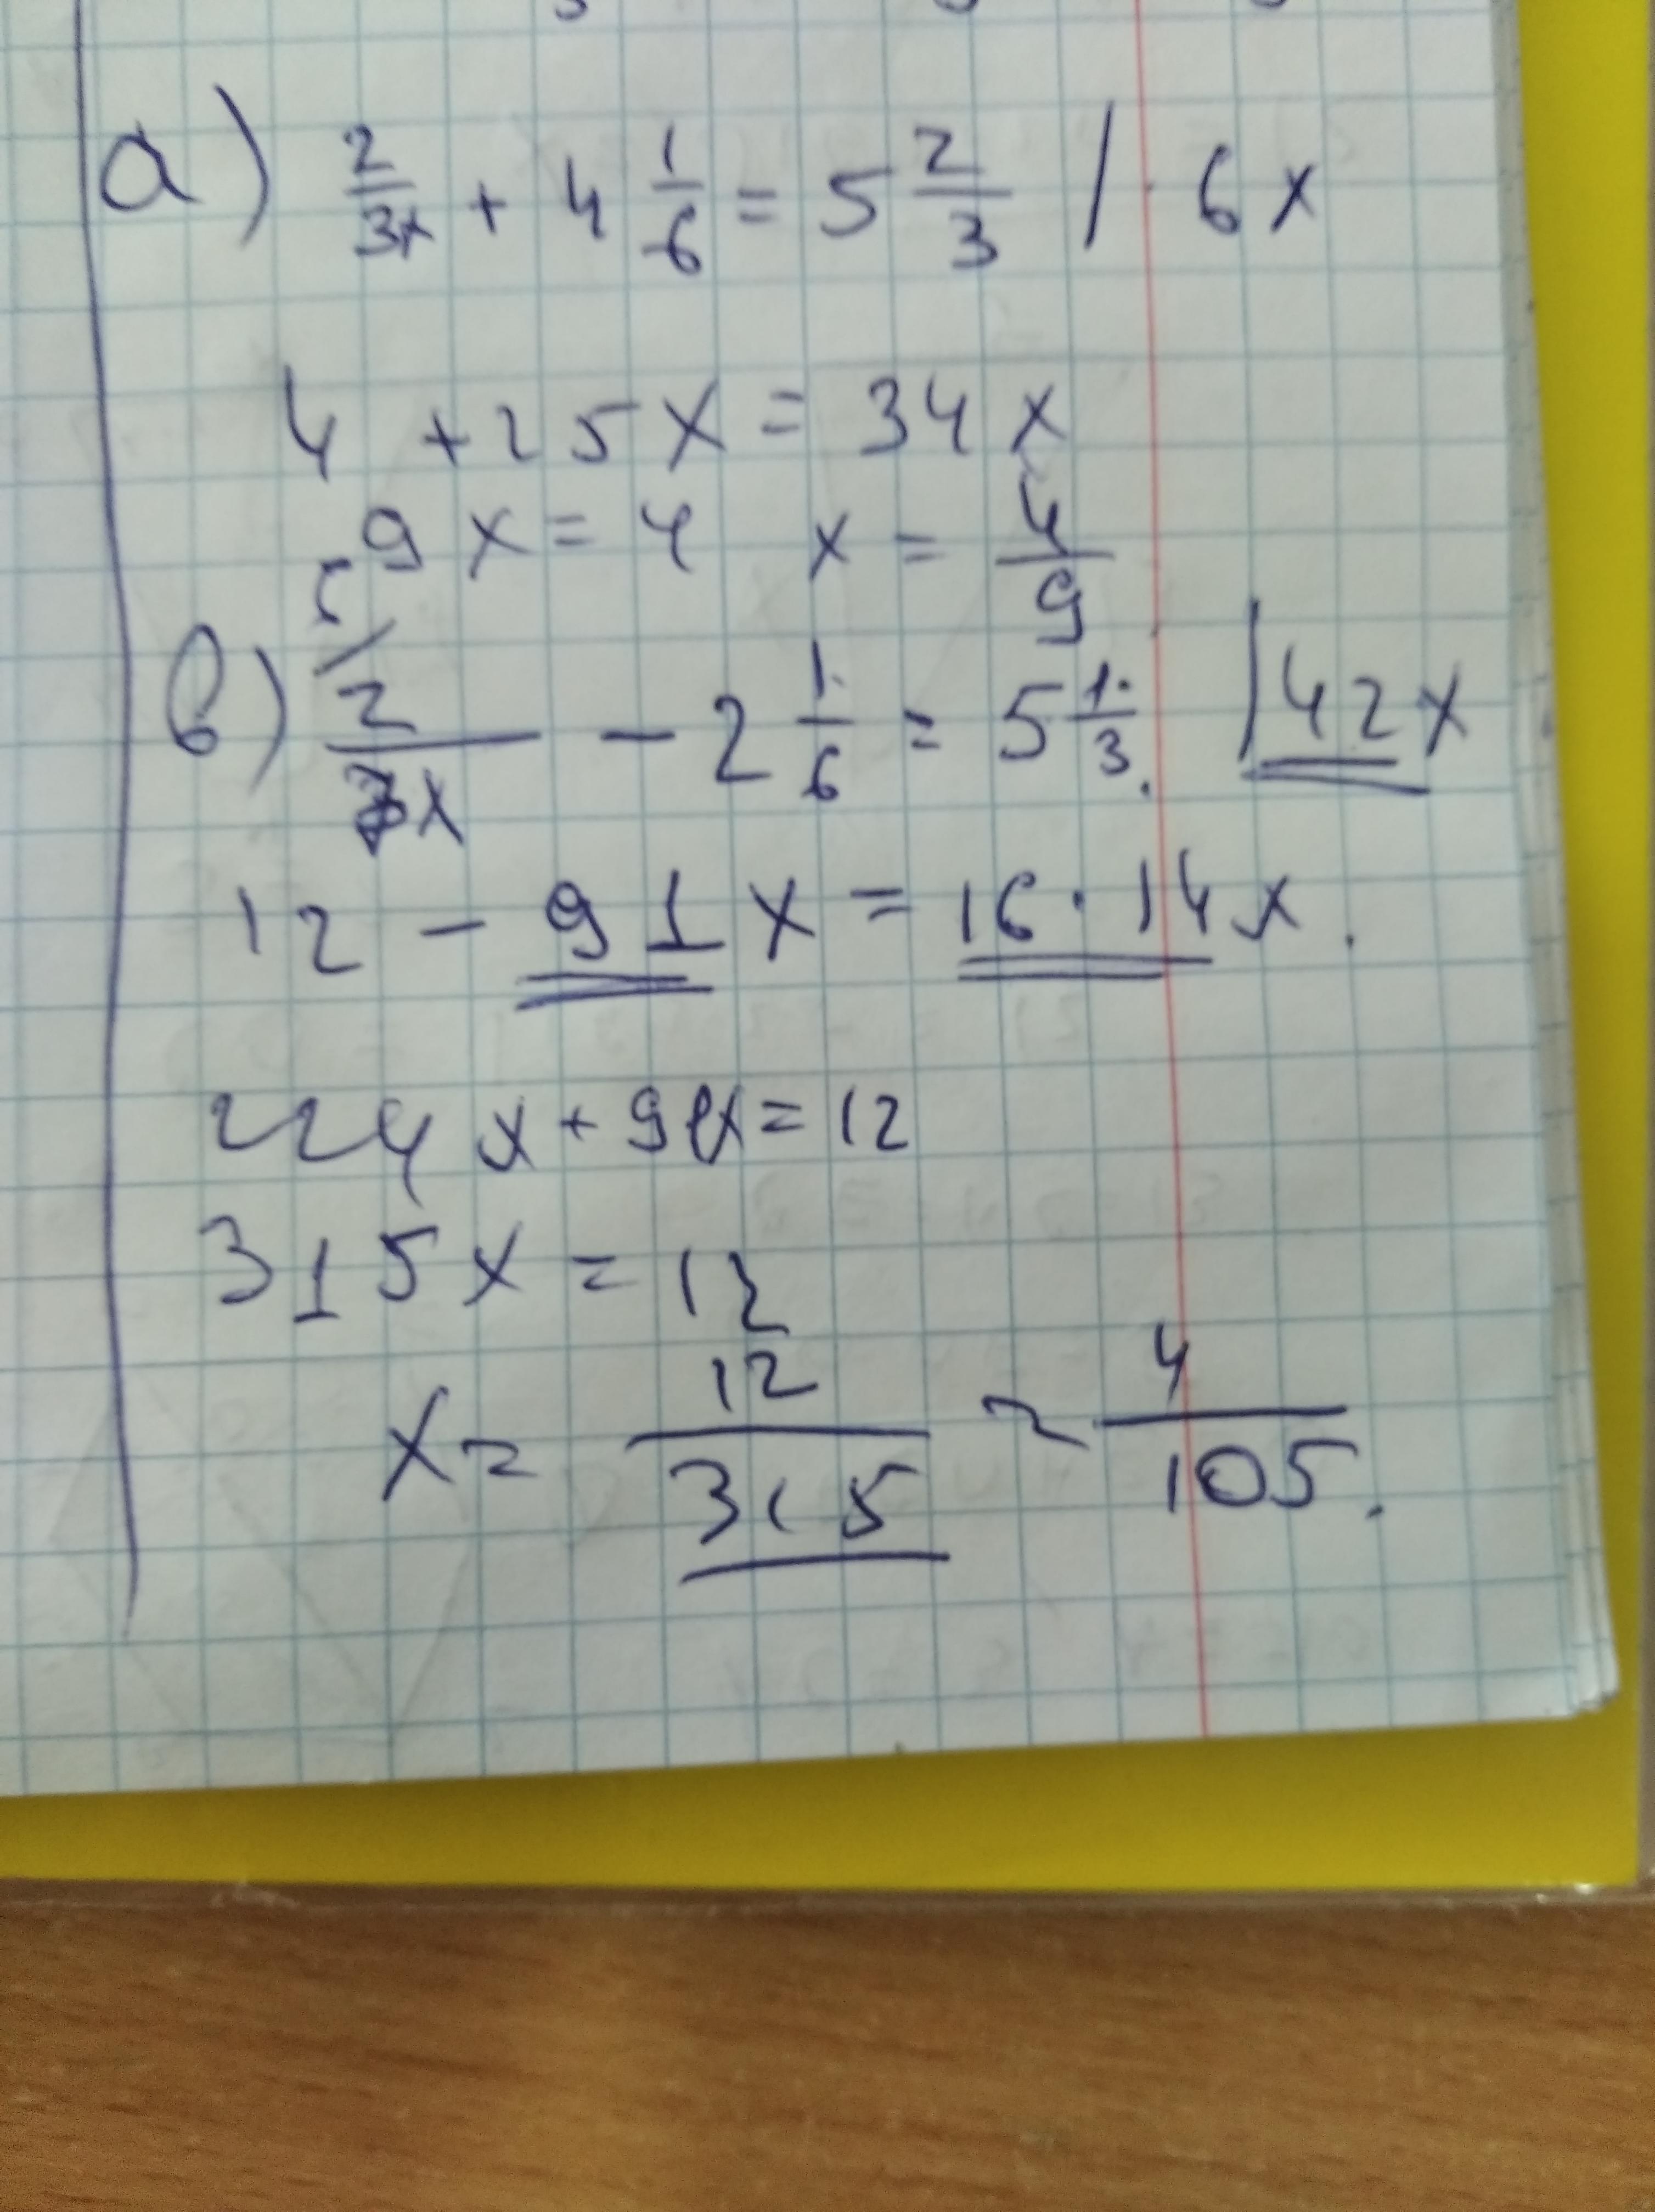 а) 2/3x + 4 1/6 = 5 2/3 / · 6x
4 + 25x = 34x
9x = 4 x = 4/9
в) 2/7x - 2 1/6 = 5 1/3. | 42x
12 - 91x = 16 · 14x.
224x + 91x = 12
315x = 12
x = 12/315 = 4/105.